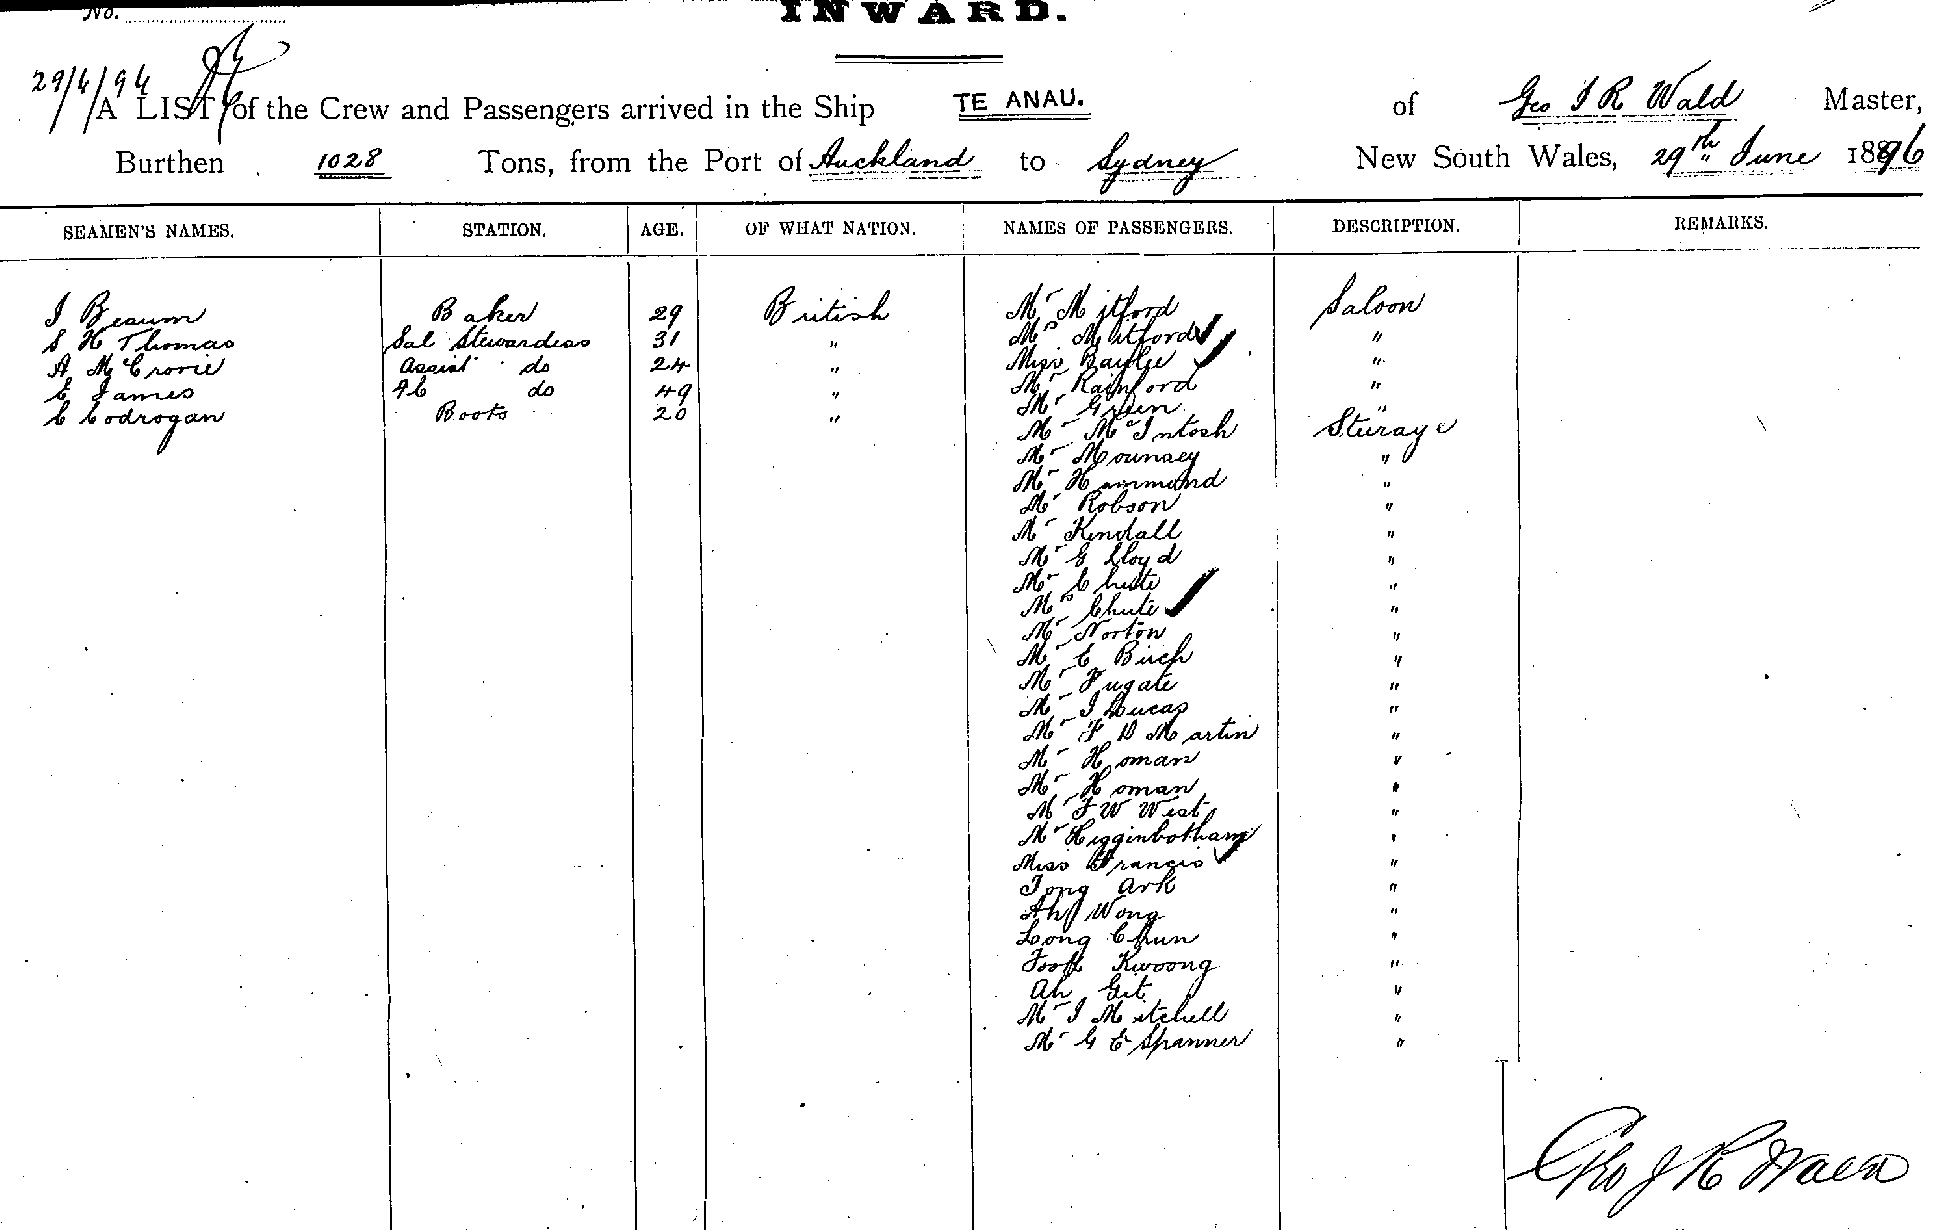 No.
INWARD.
29/6/96
A LIST of the Crew and Passengers arrived in the Ship TE ANAU. of Geo J R Wald Master,
Burthen 1028 Tons, from the Port of Auckland to Sydney New South Wales, 29th June 1896
SEAMEN'S NAMES. STATION. AGE. OF WHAT NATION. NAMES OF PASSENGERS. DESCRIPTION. REMARKS.
J Beaum Baker 29 British Mr Mitford Saloon
S H Thomas Sal Stewardess 31 " Mrs Mitford "
A McCrorie Assist do 24 " Miss Baylee "
E James FC do 49 " Mr Rainford "
C Codrogan Boots 20 " Mr Green "
Mr McIntosh Steerage
Mr Mounsey "
Mr Hammond "
Mr Robson "
Mr Kendall "
Mr G Lloyd "
Mr Chute "
Mrs Chute "
Mr Norton "
Mr C Birch "
Mr Fugate "
Mr J Lucas "
Mr F D Martin "
Mr Homan "
Mr Homan "
Mr F W West "
Mr Higginbotham "
Miss Francis "
Tong Ark "
Ah Wong "
Long Chun "
Foot Kwoong "
Ah Git "
Mr J Mitchell "
Mr G E Spanner "
Geo J R Wald